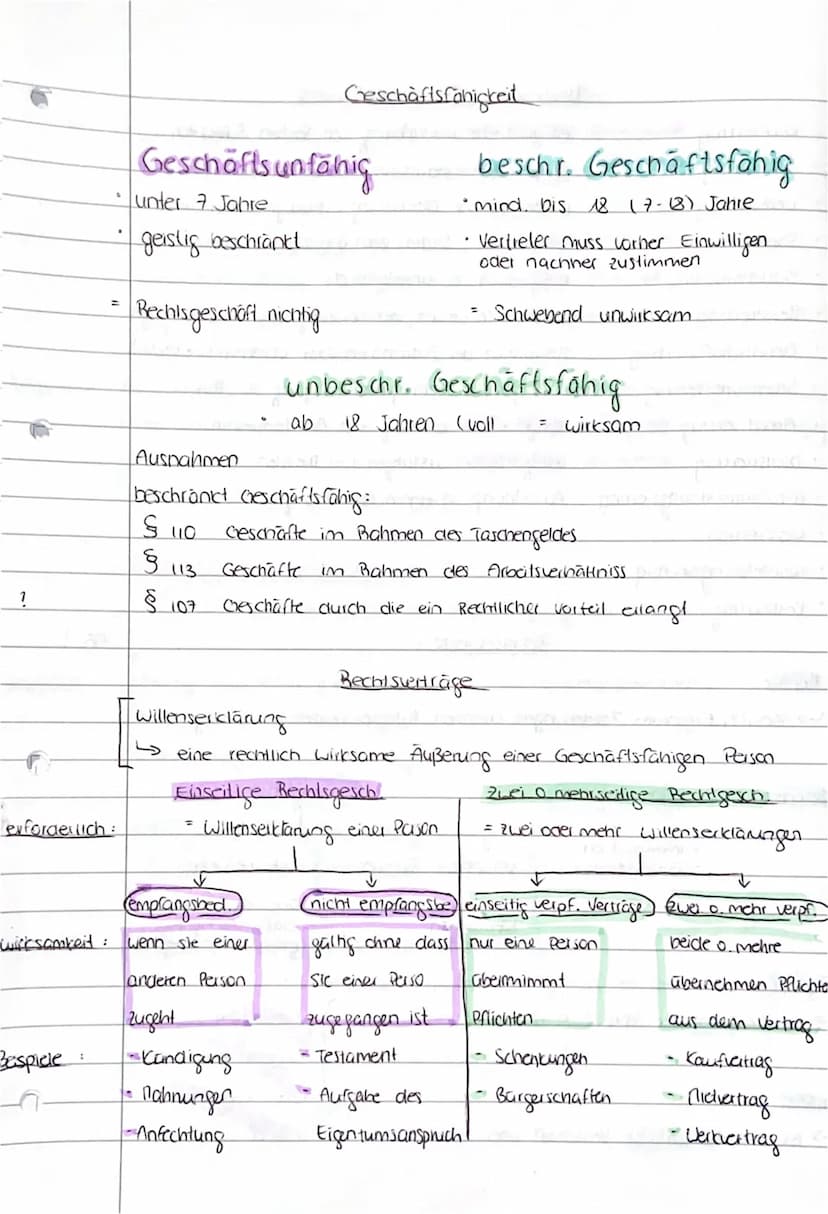 Geschäftsfähigkeit
Geschäftsunfähig
beschr. Geschäftsfähig
· unter 7 Jahre
· mind. bis 18 (7-18) Jahre
· geistig beschränkt
· Vertreter muss vorher Einwilligen
oder nachher zustimmen
= Rechtsgeschäft nichtig
= Schwebend unwirksam
unbeschr. Geschäftsfähig
· ab 18 Jahren (voll = wirksam
Ausnahmen
beschränkt Geschäftsfähig:
§ 110 Geschäfte im Rahmen des Taschengeldes
§ 113 Geschäfte im Rahmen des Arbeitsverhältniss
? § 107 Geschäfte durch die ein Rechtlicher Vorteil erlangt
Rechtsverträge
Willenserklärung
↳ eine rechtlich wirksame Äußerung einer Geschäftsfähigen Person
Einseitige Rechtsgesch.
Zwei o mehrseitige Rechtgesch.
erforderlich: = Willenserklärung einer Person
= zwei oder mehr Willenserklärungen
empfangsbed. nicht empfangsbe einseitig verpf. Verträge Zwei o. mehr verpf.
wirksamkeit: wenn sie einer gültig ohne dass nur eine Person beide o. mehre
anderen Person sie einer Perso übernimmt übernehmen Pflichte
zugeht zugegangen ist Pflichten aus dem Vertrag
Bespiele: - Kündigung - Testament - Schenkungen - Kaufvertrag
- Mahnungen - Aufgabe des - Bürgerschaften - Mietvertrag
- Anfechtung Eigentumsanspruch - Werkvertrag